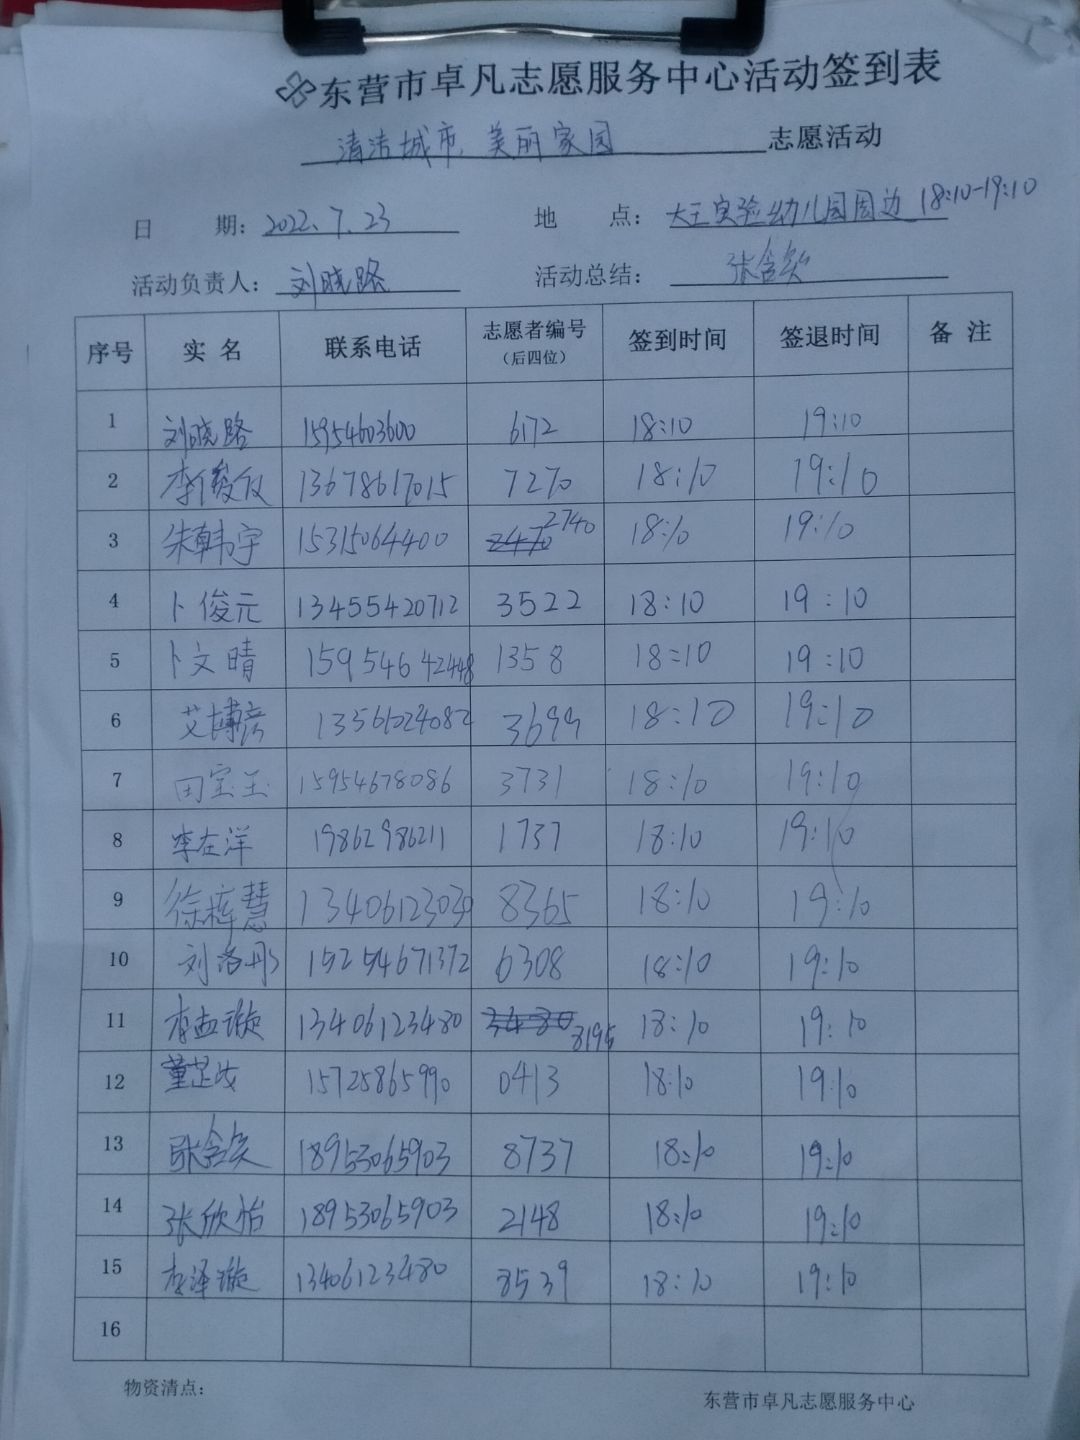 东营市卓凡志愿服务中心活动签到表
清洁城市、美丽家园 志愿活动
日 期：2022.7.23 地 点：大王实验幼儿园周边 18:10-19:10
活动负责人：刘晓路 活动总结：张含奕
序号 实 名 联系电话 志愿者编号（后四位） 签到时间 签退时间 备 注
1 刘晓路 15954603600 6172 18:10 19:10
2 李俊仪 13678617015 7270 18:10 19:10
3 朱韩宇 15315064400 2740 18:10 19:10
4 卜俊元 13455420712 3522 18:10 19:10
5 卜文晴 15954642448 1358 18:10 19:10
6 艾博彦 13561024082 3699 18:10 19:10
7 田宝玉 15954678086 3731 18:10 19:10
8 李在洋 19862986211 1737 18:10 19:10
9 徐梓慧 13406123030 8365 18:10 19:10
10 刘洛彤 15254671372 6308 18:10 19:10
11 李孟璇 13406123480 8195 18:10 19:10
12 董芷 15725865990 0413 18:10 19:10
13 张含奕 18953065903 8737 18:10 19:10
14 张欣怡 18953065903 2148 18:10 19:10
15 李泽璇 13406123480 8539 18:10 19:10
16
物资清点：
东营市卓凡志愿服务中心